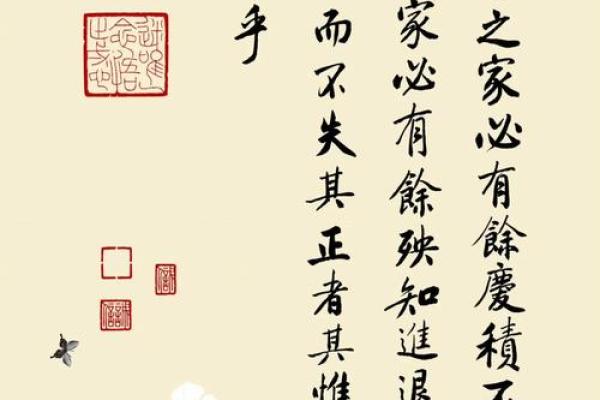 之家必有餘慶積不
家必有餘殃知進退
而不失其正者其惟
乎